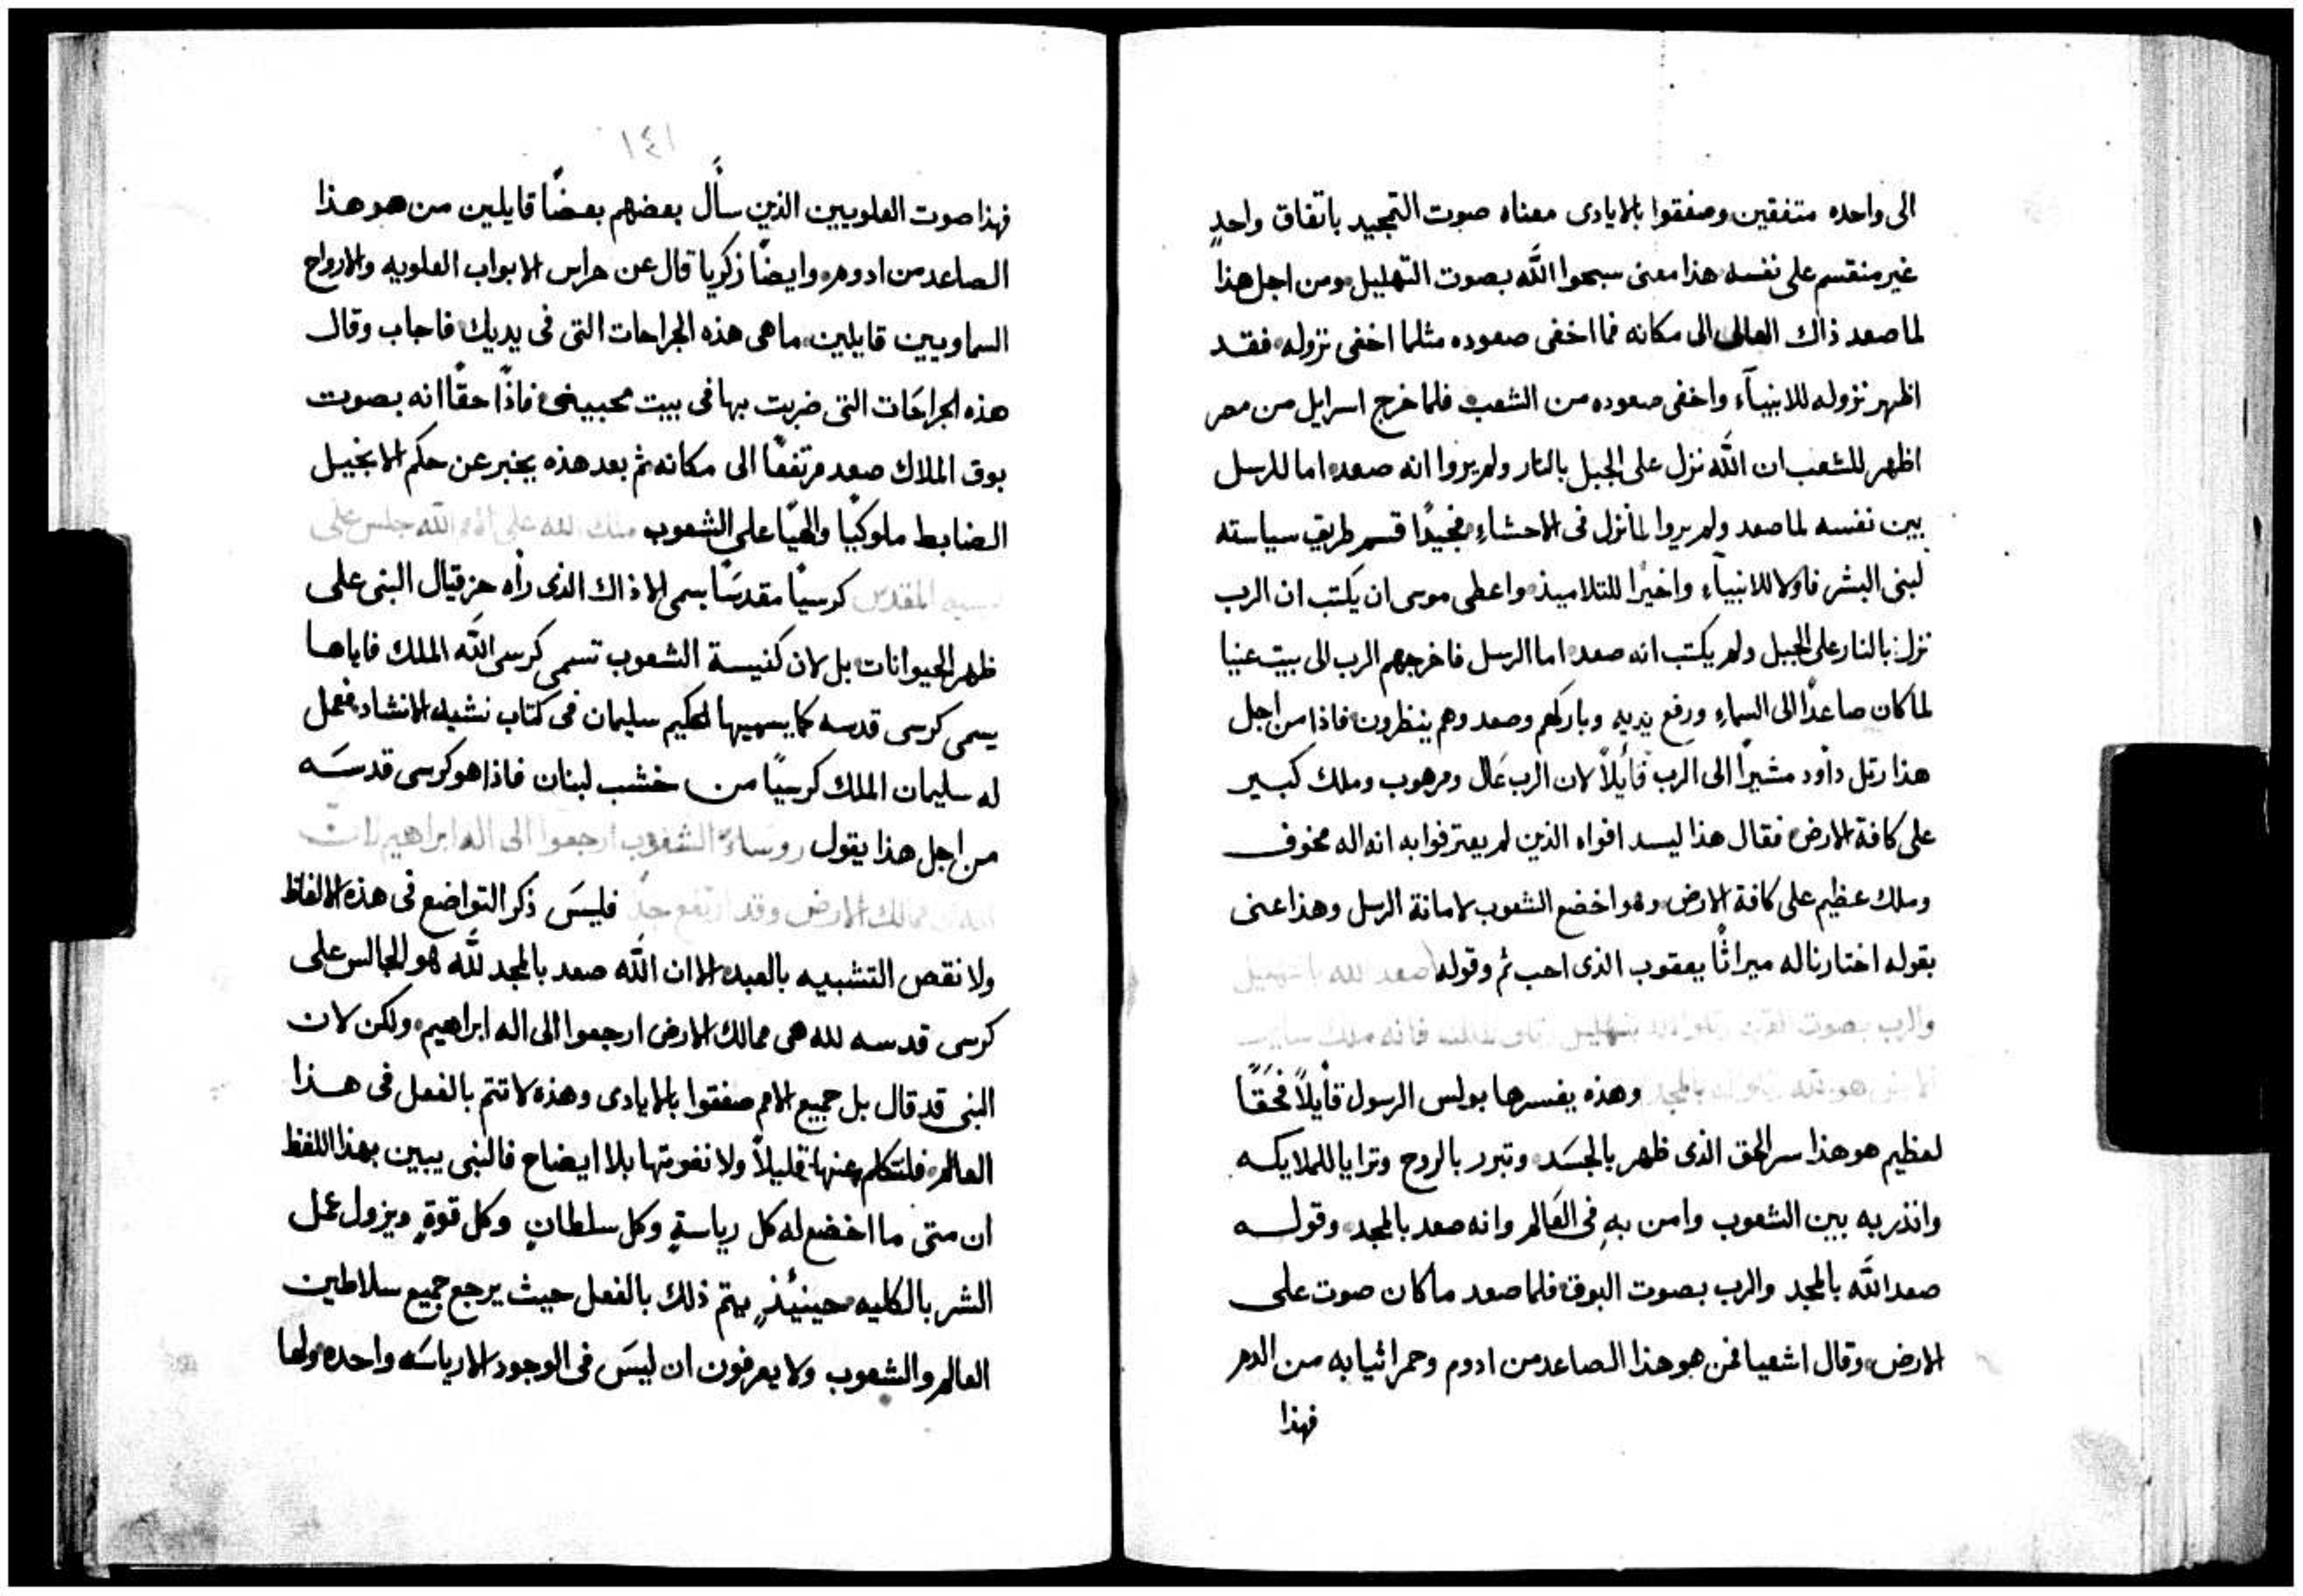 الى واحده متفقين وصفقوا بالايادى معناه صوت التمجيد باتفاق واحدٍ
غير منقسم على نفسه هذا معنى سبحوا اللّه بصوت التهليل ومن اجل هذا
لما صعد ذاك العالى الى مكانه فما اخفى صعوده مثلما اخفى نزوله فقد
اظهر نزوله للانبيآء واخفى صعوده من الشعب فلما خرج اسرايل من مصر
اظهر للشعب ان اللّه نزل على الجبل بالنار ولم يروا انه صعد اما للرسل
بين نفسه لما صعد ولم يروا لما نزل فى الاحشاءِ فجيدًا قسم طريق سياسته
لبنى البشر فاولا للانبيآءِ واخيرًا للتلاميذ واعطى موسى ان يكتب ان الرب
نزل بالنار على الجبل ولم يكتب انه صعد اما الرسل فاخرجهم الرب الى بيت عنيا
لما كان صاعدًا الى السماءِ ورفع يديه وباركهم وصعد وهم ينظرون فاذا من اجل
هذا رتل داود مشيرًا الى الرب قايلاً لان الرب عَال ومرهوب وملك كبير
على كافة الارض فقال هذا ليسد افواه الذين لم يعترفوا به انه اله مخوف
وملك عظيم على كافة الارض وهو اخضع الشعوب لامانة الرسل وهذا عنى
بقوله اختارنا له ميراثًا يعقوب الذى احب ثم وقوله صعد الله بالتهليل
والرب بصوت القرن رتلوا
وهذه يفسرها بولس الرسول قأيلاً فحَقًا
لعظيم هو هذا سر الحق الذى ظهر بالجسَد وتبرر بالروح وترايا للملايكه
وانذر به بين الشعوب وامن بهِ فى العَالم وانه صعد بالمجد وقوله
صعد اللّه بالمجد والرب بصوت البوق فلما صعد ما كان صوت على
الارض وقال اشعيا فمن هو هذا الصاعد من ادوم وحمر اثيابه من الدم
فهذا
١٤١
فهذا صوت العلويين الذين سأَل بعضهم بعضًا قايلين من هو هذا
الصاعد من ادوم وايضًا زكريا قال عن حراس الابواب العلويه والارواح
السماويين قايلين ما هى هذه الجراحات التى فى يديك فاجاب وقال
هذه الجراحَات التى ضربت بها فى بيت محبينى فاذًا حقًا انه بصوت
بوق الملاك صعد مرتفعًا الى مكانه ثم بعد هذه يخبر عن حكم الانجيل
الضابط ملوكيًا والهيًا على الشعوب ملك الله على الامم الله جلس على
كرسيه المقدس كرسيًا مقدسًا يسمى الا ذاك الذى رأه حزقيال النبى على
ظهر الحيوانات بل لان كنيسة الشعوب تسمى كرسى اللّه الملك فاياها
يسمى كرسى قدسه كما يسميها الحكيم سليمان فى كتاب نشيد الانشاد فعمل
له سليمان الملك كرسيًا من خشب لبنان فاذا هو كرسى قدسَه
من اجل هذا يقول روساء الشعوب ارجعوا الى اله ابراهيم لان
ممالك الارض وقد ارتفع جدًا فليسَ ذكر التواضع فى هذه الالفاظ
ولا نقص التشبيه بالعبد الا ان اللّه صعد بالمجد للّه هو الجالس على
كرسى قدسه لله هى ممالك الارض ارجعوا الى اله ابراهيم ولكن لان
النبى قد قال بل جميع الامم صفقوا بالايادى وهذه لا تتم بالفعل فى هذا
العالم فلنتكلم عنها قليلاً ولا نفوتها بلا ايضاح فالنبى يبين بهذا اللفظ
ان متى ما اخضع له كل رياسةٍ وكل سلطانٍ وكل قوةٍ ويزول عمل
الشر بالكليه حينيئذٍ يتم ذلك بالفعل حيث يرجع جميع سلاطين
العالم والشعوب ولا يعرفون ان ليسَ فى الوجود الا رياسَه واحده ولها